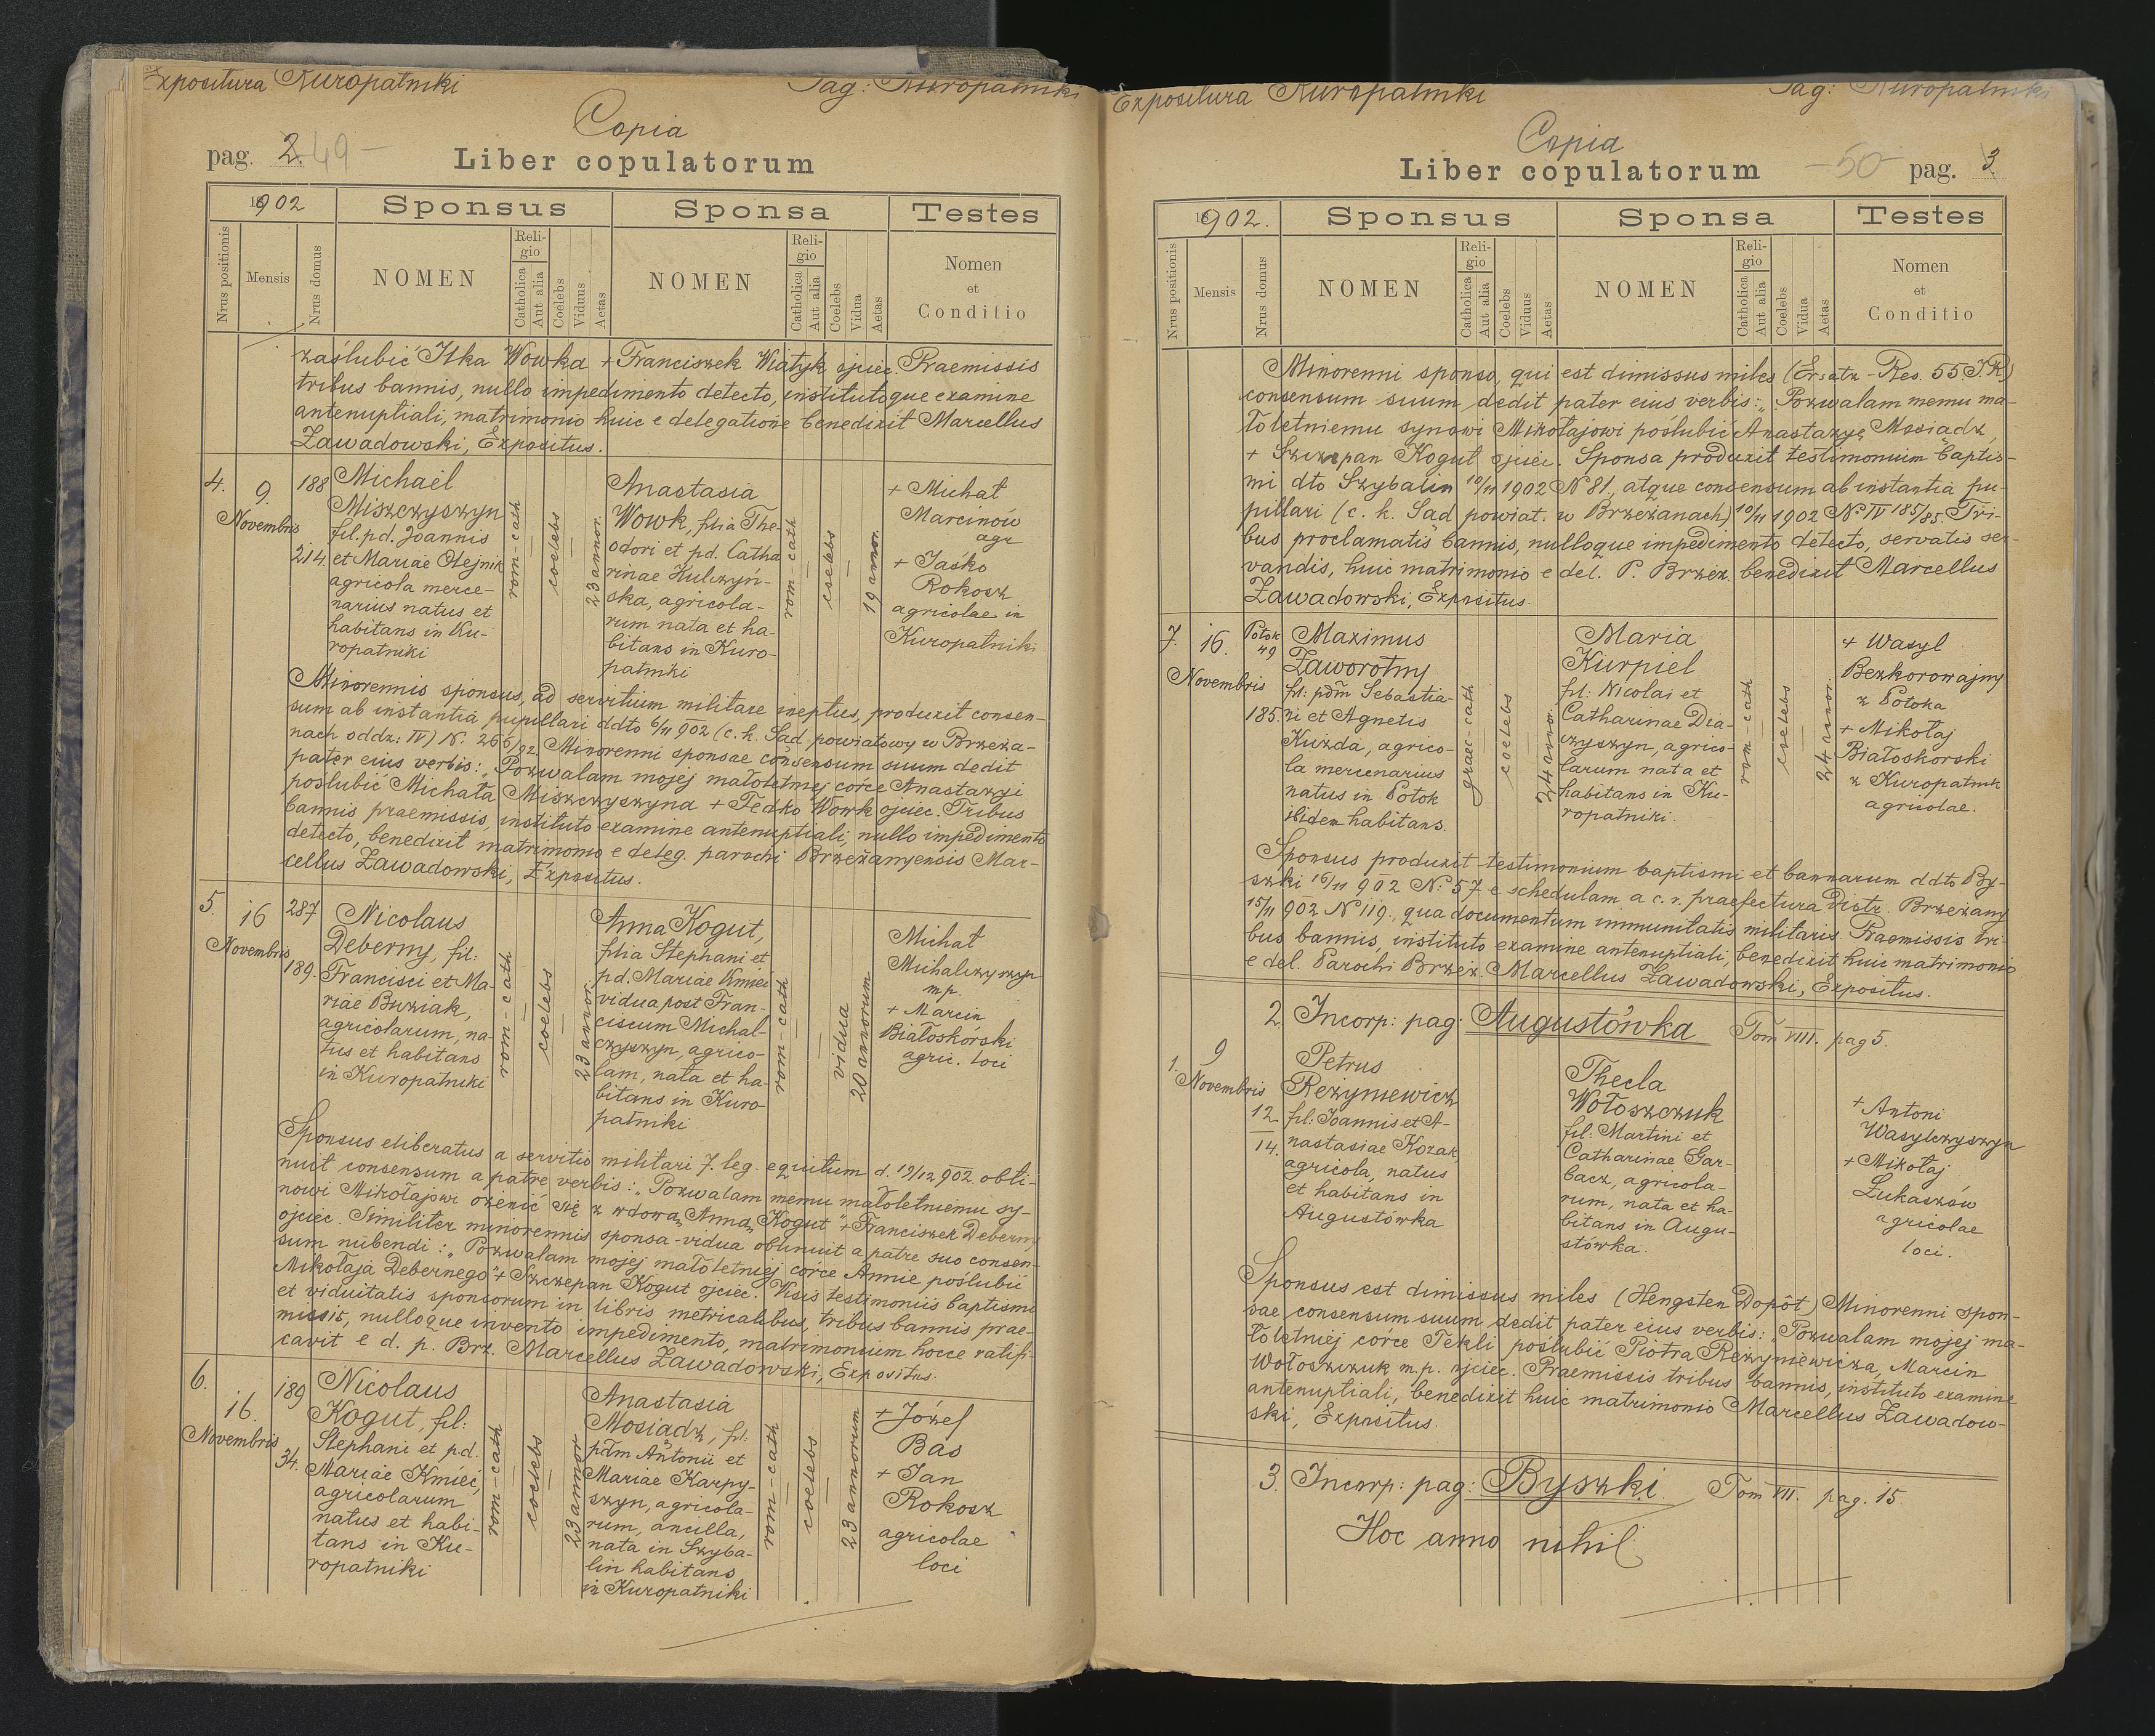 Expositura Kuropatniki
Pag: Kuropatniki
Copia
pag. 2. 49 -
Liber copulatorum
1902
Sponsus
Sponsa
Testes
Nrus positionis
Mensis
Nrus domus
NOMEN
Religio
Catholica
Aut alia
Coelebs
Viduus
Aetas
NOMEN
Religio
Catholica
Aut alia
Coelebs
Vidua
Aetas
Nomen
et
Conditio
zaślubić Ilka Wowka + Franciszek Wiatyk ojciec. Praemissis
tribus bannis, nullo impedimento detecto, institutoque examine
antenuptiali, matrimonio huic e delegatione benedixit Marcellus
Zawadowski, Expositus.
4.
9.
Novembris
188
214.
Michaël
Miszczyszyn
fil. pd. Joannis
et Mariae Olejnik
agricola merce-
narius natus et
habitans in Ku-
ropatniki
rom-cath
coelebs
23 annor.
Anastasia
Wowk, filia The-
odori et pd. Catha
rinae Hulczyń-
ska, agricola-
rum nata et ha-
bitans in Kuro-
patniki
rom-cath
coelebs
19 annor.
+ Michał
Marcinów
agr
+ Jaśko
Rokosz
agricolae in
Kuropatniki
Minorennis sponsus, ad servitium militare ineptus, produxit consen-
sum ab instantia pupillari ddto 6/11 902 (c. k. Sąd powiatowy w Brzeża-
nach oddz: IV) N. 266/92. Minorenni sponsae consensum suum dedit
pater eius verbis: „Pozwalam mojej małoletniej córce Anastazyi
poślubić Michała Miszczyszyna + Fedko Wowk ojciec. Tribus
bannis praemissis, instituto examine antenuptiali, nullo impedimento
detecto, benedixit matrimonio e deleg. parochi Brzeżanyensis Mar-
cellus Zawadowski, Expositus.
5.
16
Novembris
287
189.
Nicolaus
Deberny, fil:
Francisci et Ma-
riae Buziak,
agricolarum, na-
tus et habitans
in Kuropatniki
rom-cath
coelebs
23 annor.
Anna Kogut,
filia Stephani et
pd. Mariae Kmieć
vidua post Fran-
ciscum Michal-
czyszyn, agrico-
lam, nata et ha-
bitans in Kuro-
patniki
rom-cath
vidua
20 annorum
Michał
Michalczyszyn
mp.
+ Marcin
Białoskórski
agric. loci
Sponsus eliberatus a servitio militari 7. leg. equitum d. 19/12 902 obti-
nuit consensum a patre verbis: „Pozwalam memu małoletniemu sy-
nowi Mikołajowi ożenić się z wdową Anną Kogut" + Franciszek Deberny
ojciec. Similiter minorennis sponsa-vidua obtinuit a patre suo consen-
sum nubendi: „Pozwalam mojej małoletniej córce Annie poślubić
Mikołaja Debernego" + Szczepan Kogut ojciec. Visis testimoniis baptismi
et viduitatis sponsorum in libris metricalibus, tribus bannis prae-
missis, nulloque invento impedimento, matrimonium hocce ratifi-
cavit e d. p. Brz. Marcellus Zawadowski, Expositus.
6.
16.
Novembris
189
34.
Nicolaus
Kogut, fil:
Stephani et pd.
Mariae Kmieć,
agricolarum
natus et habi-
tans in Ku-
ropatniki
rom-cath
coelebs
23 annor
Anastasia
Mosiądz, fil:
pdm Antonii et
Mariae Karpy-
szyn, agricola-
rum, ancilla,
nata in Szyba-
lin habitans
in Kuropatniki
rom-cath
coelebs
23 annorum
+ Józef
Bas
+ Jan
Rokosz
agricolae
loci
Expositura Kuropatniki
Pag: Kuropatniki
Copia
Liber copulatorum
-50- pag. 3
1902.
Sponsus
Sponsa
Testes
Nrus positionis
Mensis
Nrus domus
NOMEN
Religio
Catholica
Aut alia
Coelebs
Viduus
Aetas
NOMEN
Religio
Catholica
Aut alia
Coelebs
Vidua
Aetas
Nomen
et
Conditio
Minorenni sponso, qui est dimissus miles (Ersatz-Res. 55. J.R.)
consensum suum dedit pater eius verbis: „Pozwalam memu ma-
łoletniemu synowi Mikołajowi poślubić Anastazyę Mosiądz,
+ Szczepan Kogut ojciec. Sponsa produxit testimonium baptis-
mi dto Szybalin 10/11 1902 N 81., atque consensum ab instantia pu-
pillari (c. k. Sąd powiat. w Brzeżanach) 10/11 1902 No IV 185/85. Tri-
bus proclamatis bannis, nulloque impedimento detecto, servatis ser-
vandis, huic matrimonio e del. P. Brzeż. benedixit Marcellus
Zawadowski, Expositus.
7.
16.
Novembris
Potok
49
185.
Maximus
Zaworotny
fil: pdm Sebastia-
ni et Agnetis
Kuzda, agrico-
la mercenarius
natus in Potok
ibidem habitans.
graec-cath
coelebs
24 annor.
Maria
Kurpiel
fil: Nicolai et
Catharinae Dia-
czyszyn, agrico-
larum nata et
habitans in Ku-
ropatniki.
rom-cath
coelebs
24 annor.
+ Wasyl
Bezkorowajny
z Potoka
+ Mikołaj
Białoskorski
z Kuropatnik
agricolae.
Sponsus produxit testimonium baptismi et bannorum ddto By-
szki 16/11 902 N: 57 e schedulam a c. r. praefectura Distr. Brzeżany
15/11 902 N 119., qua documentum immunitatis militaris. Praemissis tri-
bus bannis, instituto examine antenuptiali, benedixit huic matrimonio
e del. Parochi Brzeż. Marcellus Zawadowski, Expositus.
2 Incorp: pag: Augustówka Tom VIII. pag 5.
1.
9
Novembris
12.
14.
Petrus
Reżyniewicz
fil: Joannis et A-
nastasiae Kozak,
agricola, natus
et habitans in
Augustówka
Thecla
Wołoszczuk
fil: Martini et
Catharinae Gar-
bacz, agricola-
rum, nata et ha-
bitans in Augu-
stówka.
+ Antoni
Wasylczyszyn
+ Mikołaj
Łukaszów
agricolae
loci.
Sponsus est dimissus miles (Hengsten Depôt) Minorenni spon-
sae consensum suum dedit pater eius verbis: „Pozwalam mojej ma-
łoletniej córce Tekli poślubić Piotra Reżyniewicza, Marcin
Wołoszczuk m.p. ojciec. Praemissis tribus bannis, instituto examine
antenuptiali, benedixit huic matrimonio Marcellus Zawadow-
ski, Expositus.
3. Incorp: pag: Byszki. Tom VII. pag. 15.
Hoc anno nihil